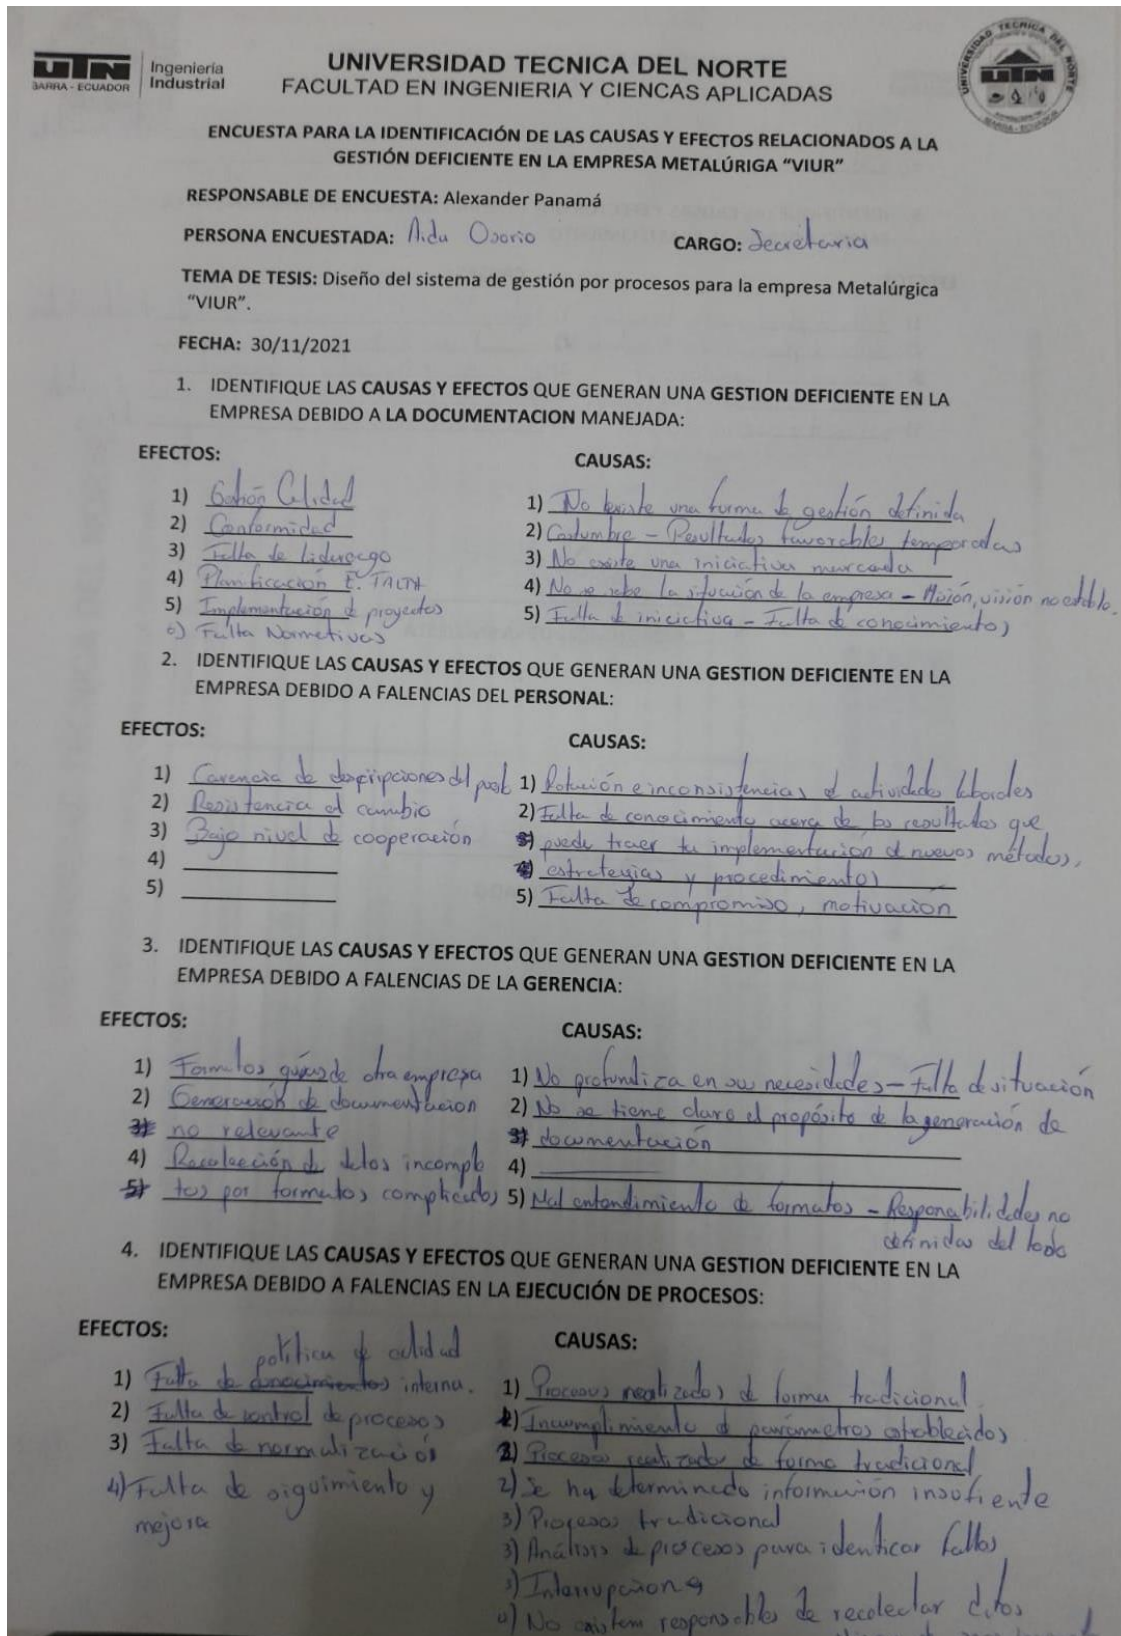 UTN
IBARRA - ECUADOR
Ingeniería
Industrial
UNIVERSIDAD TECNICA DEL NORTE
FACULTAD EN INGENIERIA Y CIENCAS APLICADAS
UNIVERSIDAD TECNICA DEL NORTE
UTN
IBARRA - ECUADOR
ENCUESTA PARA LA IDENTIFICACIÓN DE LAS CAUSAS Y EFECTOS RELACIONADOS A LA
GESTIÓN DEFICIENTE EN LA EMPRESA METALÚRIGA “VIUR”
RESPONSABLE DE ENCUESTA: Alexander Panamá
PERSONA ENCUESTADA: Aida Osorio CARGO: Secretaria
TEMA DE TESIS: Diseño del sistema de gestión por procesos para la empresa Metalúrgica
“VIUR”.
FECHA: 30/11/2021
1. IDENTIFIQUE LAS CAUSAS Y EFECTOS QUE GENERAN UNA GESTION DEFICIENTE EN LA
EMPRESA DEBIDO A LA DOCUMENTACION MANEJADA:
EFECTOS:
1) Gestión Calidad
2) Conformidad
3) Falta de liderazgo
4) Planificación E.
5) Implementación de proyectos
6) Falta Normativas
CAUSAS:
1) No existe una forma de gestión definida
2) Costumbre - Resultados favorables temporadas
3) No existe una iniciativa marcada
4) No se sabe la situación de la empresa - Misión, visión no establ.
5) Falta de iniciativa - Falta de conocimientos
2. IDENTIFIQUE LAS CAUSAS Y EFECTOS QUE GENERAN UNA GESTION DEFICIENTE EN LA
EMPRESA DEBIDO A FALENCIAS DEL PERSONAL:
EFECTOS:
1) Carencia de descripciones del
2) Resistencia al cambio
3) Bajo nivel de cooperación
4)
5)
CAUSAS:
1) Rotación e inconsistencias de actividades laborales
2) Falta de conocimiento acerca de los resultados que
3) puede traer la implementación de nuevos métodos,
4) estrategias y procedimientos
5) Falta de compromiso, motivación
3. IDENTIFIQUE LAS CAUSAS Y EFECTOS QUE GENERAN UNA GESTION DEFICIENTE EN LA
EMPRESA DEBIDO A FALENCIAS DE LA GERENCIA:
EFECTOS:
1) Formatos guías de otra empresa
2) Generación de documentacion
3) no relevante
4) Recolección de datos incomple
5) tos por formatos complicados
CAUSAS:
1) No profundiza en sus necesidades - Falta de situación
2) No se tiene claro el propósito de la generación de
3) documentación
4)
5) Mal entendimiento de formatos - Responabilidades no
definidas del todo
4. IDENTIFIQUE LAS CAUSAS Y EFECTOS QUE GENERAN UNA GESTION DEFICIENTE EN LA
EMPRESA DEBIDO A FALENCIAS EN LA EJECUCIÓN DE PROCESOS:
EFECTOS:
política de calidad
1) Falta de conocimientos interna.
2) Falta de control de procesos
3) Falta de normalización
4) Falta de siguimiento y
mejora
CAUSAS:
1) Procesos realizados de forma tradicional
2) Incumplimiento de parámetros establecidos
3) Procesos realizados de forma tradicional
2) Se ha determinado información insufiente
3) Procesos tradicional
3) Análisis de procesos para identicar fallos
3)
4) No existem responsables de recolectar datos